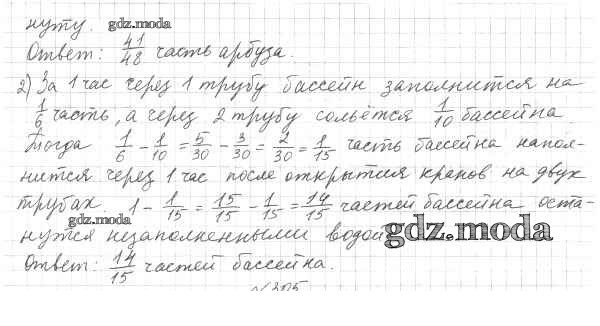 нуту. gdz.moda
Ответ: 41/48 часть арбуза.
2) За 1 час через 1 трубу бассейн заполнится на
1/6 часть, а через 2 трубу сольётся 1/10 бассейна
Тогда 1/6 - 1/10 = 5/30 - 3/30 = 2/30 = 1/15 часть бассейна напол-
нится через 1 час после открытия кранов на двух
трубах. 1 - 1/15 = 15/15 - 1/15 = 14/15 частей бассейна оста-
gdz.moda
нутся незаполненными водой gdz.moda
Ответ: 14/15 частей бассейна.